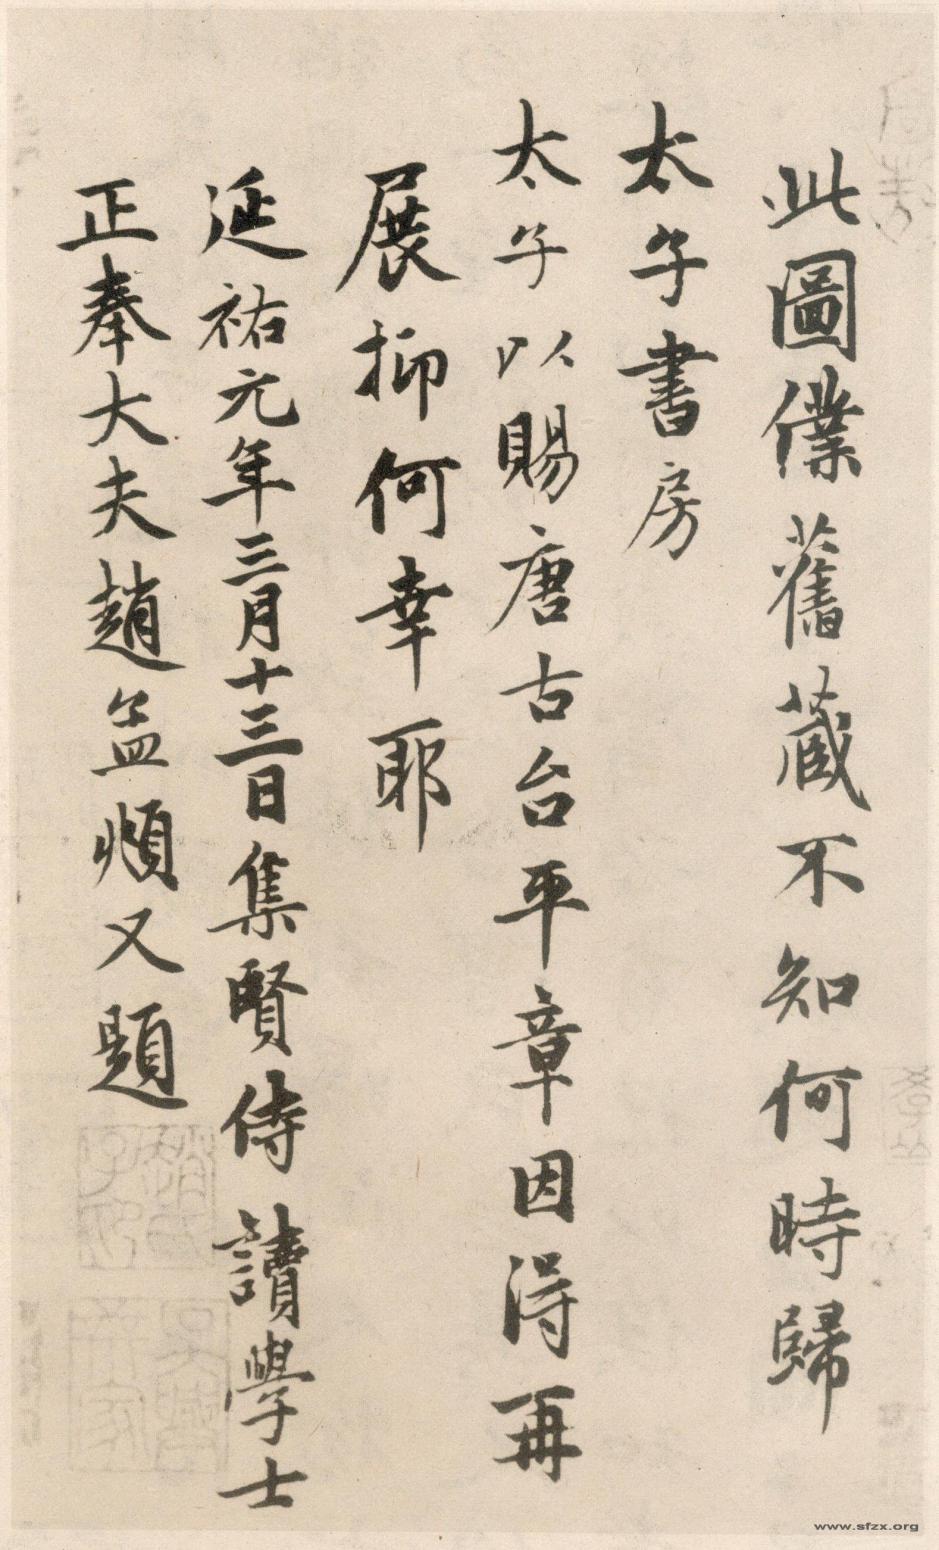 此圖僕舊藏不知何時歸
太子書房
太子以賜唐古台平章因得再
展抑何幸耶
延祐元年三月十三日集賢侍讀學士
正奉大夫趙孟頫又題
www.sfzx.org